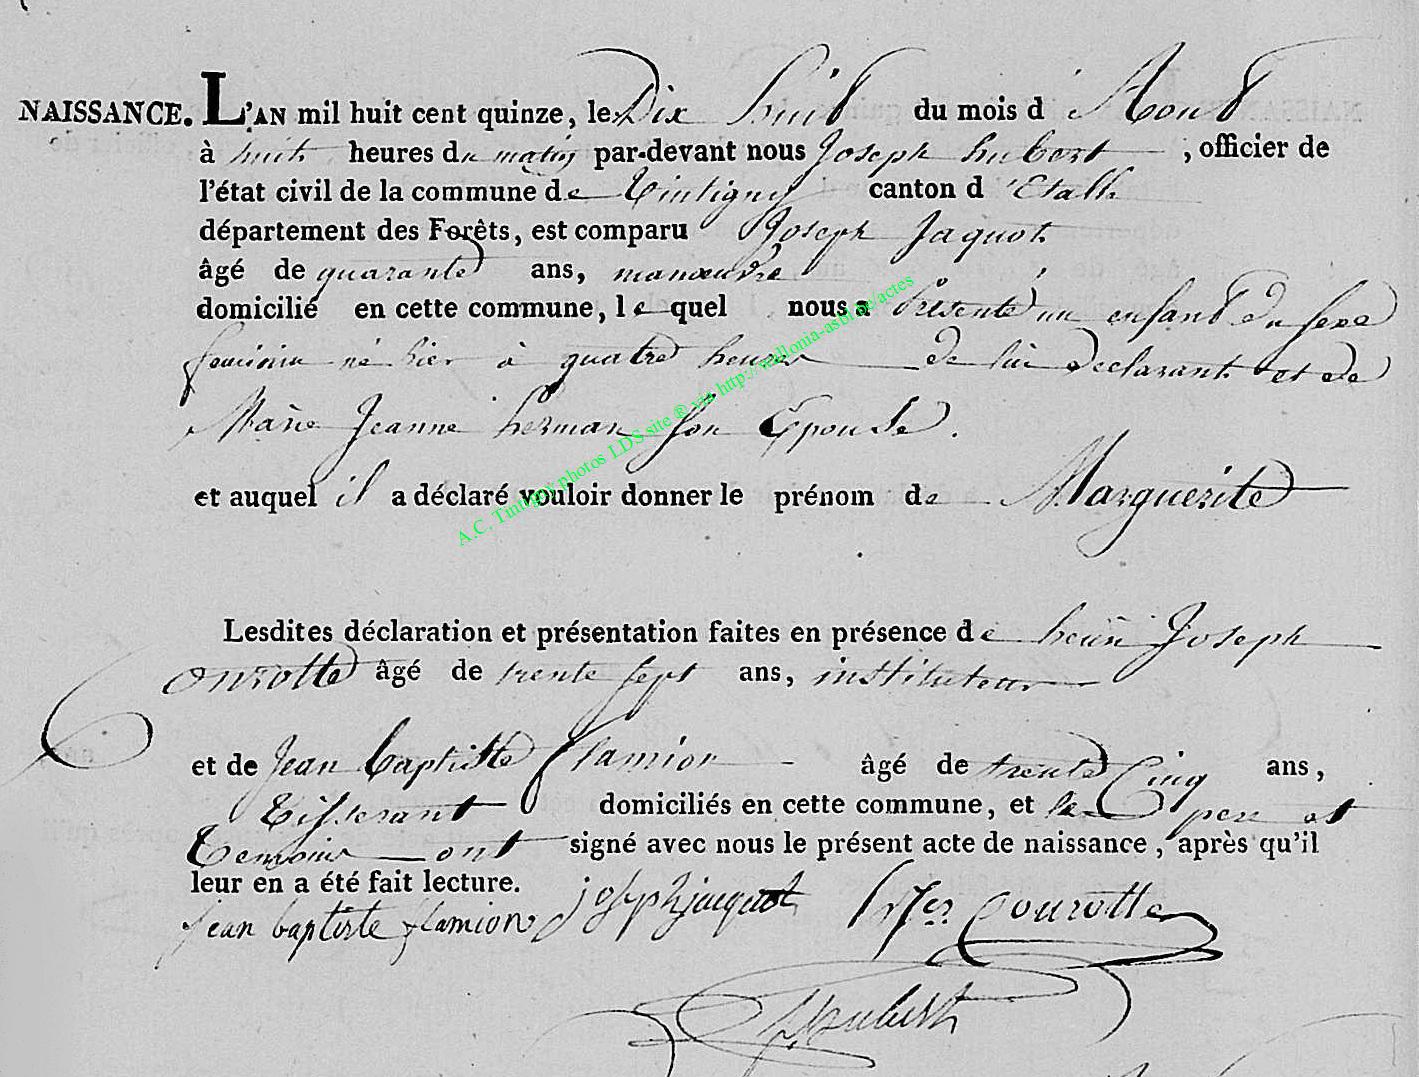 NAISSANCE. L'AN mil huit cent quinze, le Dix huit du mois d Aout
à huit heures du matin par-devant nous Joseph hubert, officier de
l'état civil de la commune de Tintigny canton d'Etalle
département des Forêts, est comparu Joseph Jaquot
âgé de quarante ans, manœuvre
domicilié en cette commune, le quel nous a Présenté un enfant du sexe
feminin né hier à quatre heures de lui declarant et de
Marie Jeanne herman son Epouse.
et auquel il a déclaré vouloir donner le prénom de Marguerite
Lesdites déclaration et présentation faites en présence de henri Joseph
Courotte âgé de trente sept ans, instituteur
et de Jean baptiste flamion âgé de trente Cinq ans,
Tisserant domiciliés en cette commune, et le pere et
Temoins ont signé avec nous le présent acte de naissance, après qu'il
leur en a été fait lecture.
jean baptiste flamion joseph jacquot Courotte
hubert
A.C. Tintigny photos LDS site ® via http://wallonia-asbl.be/actes